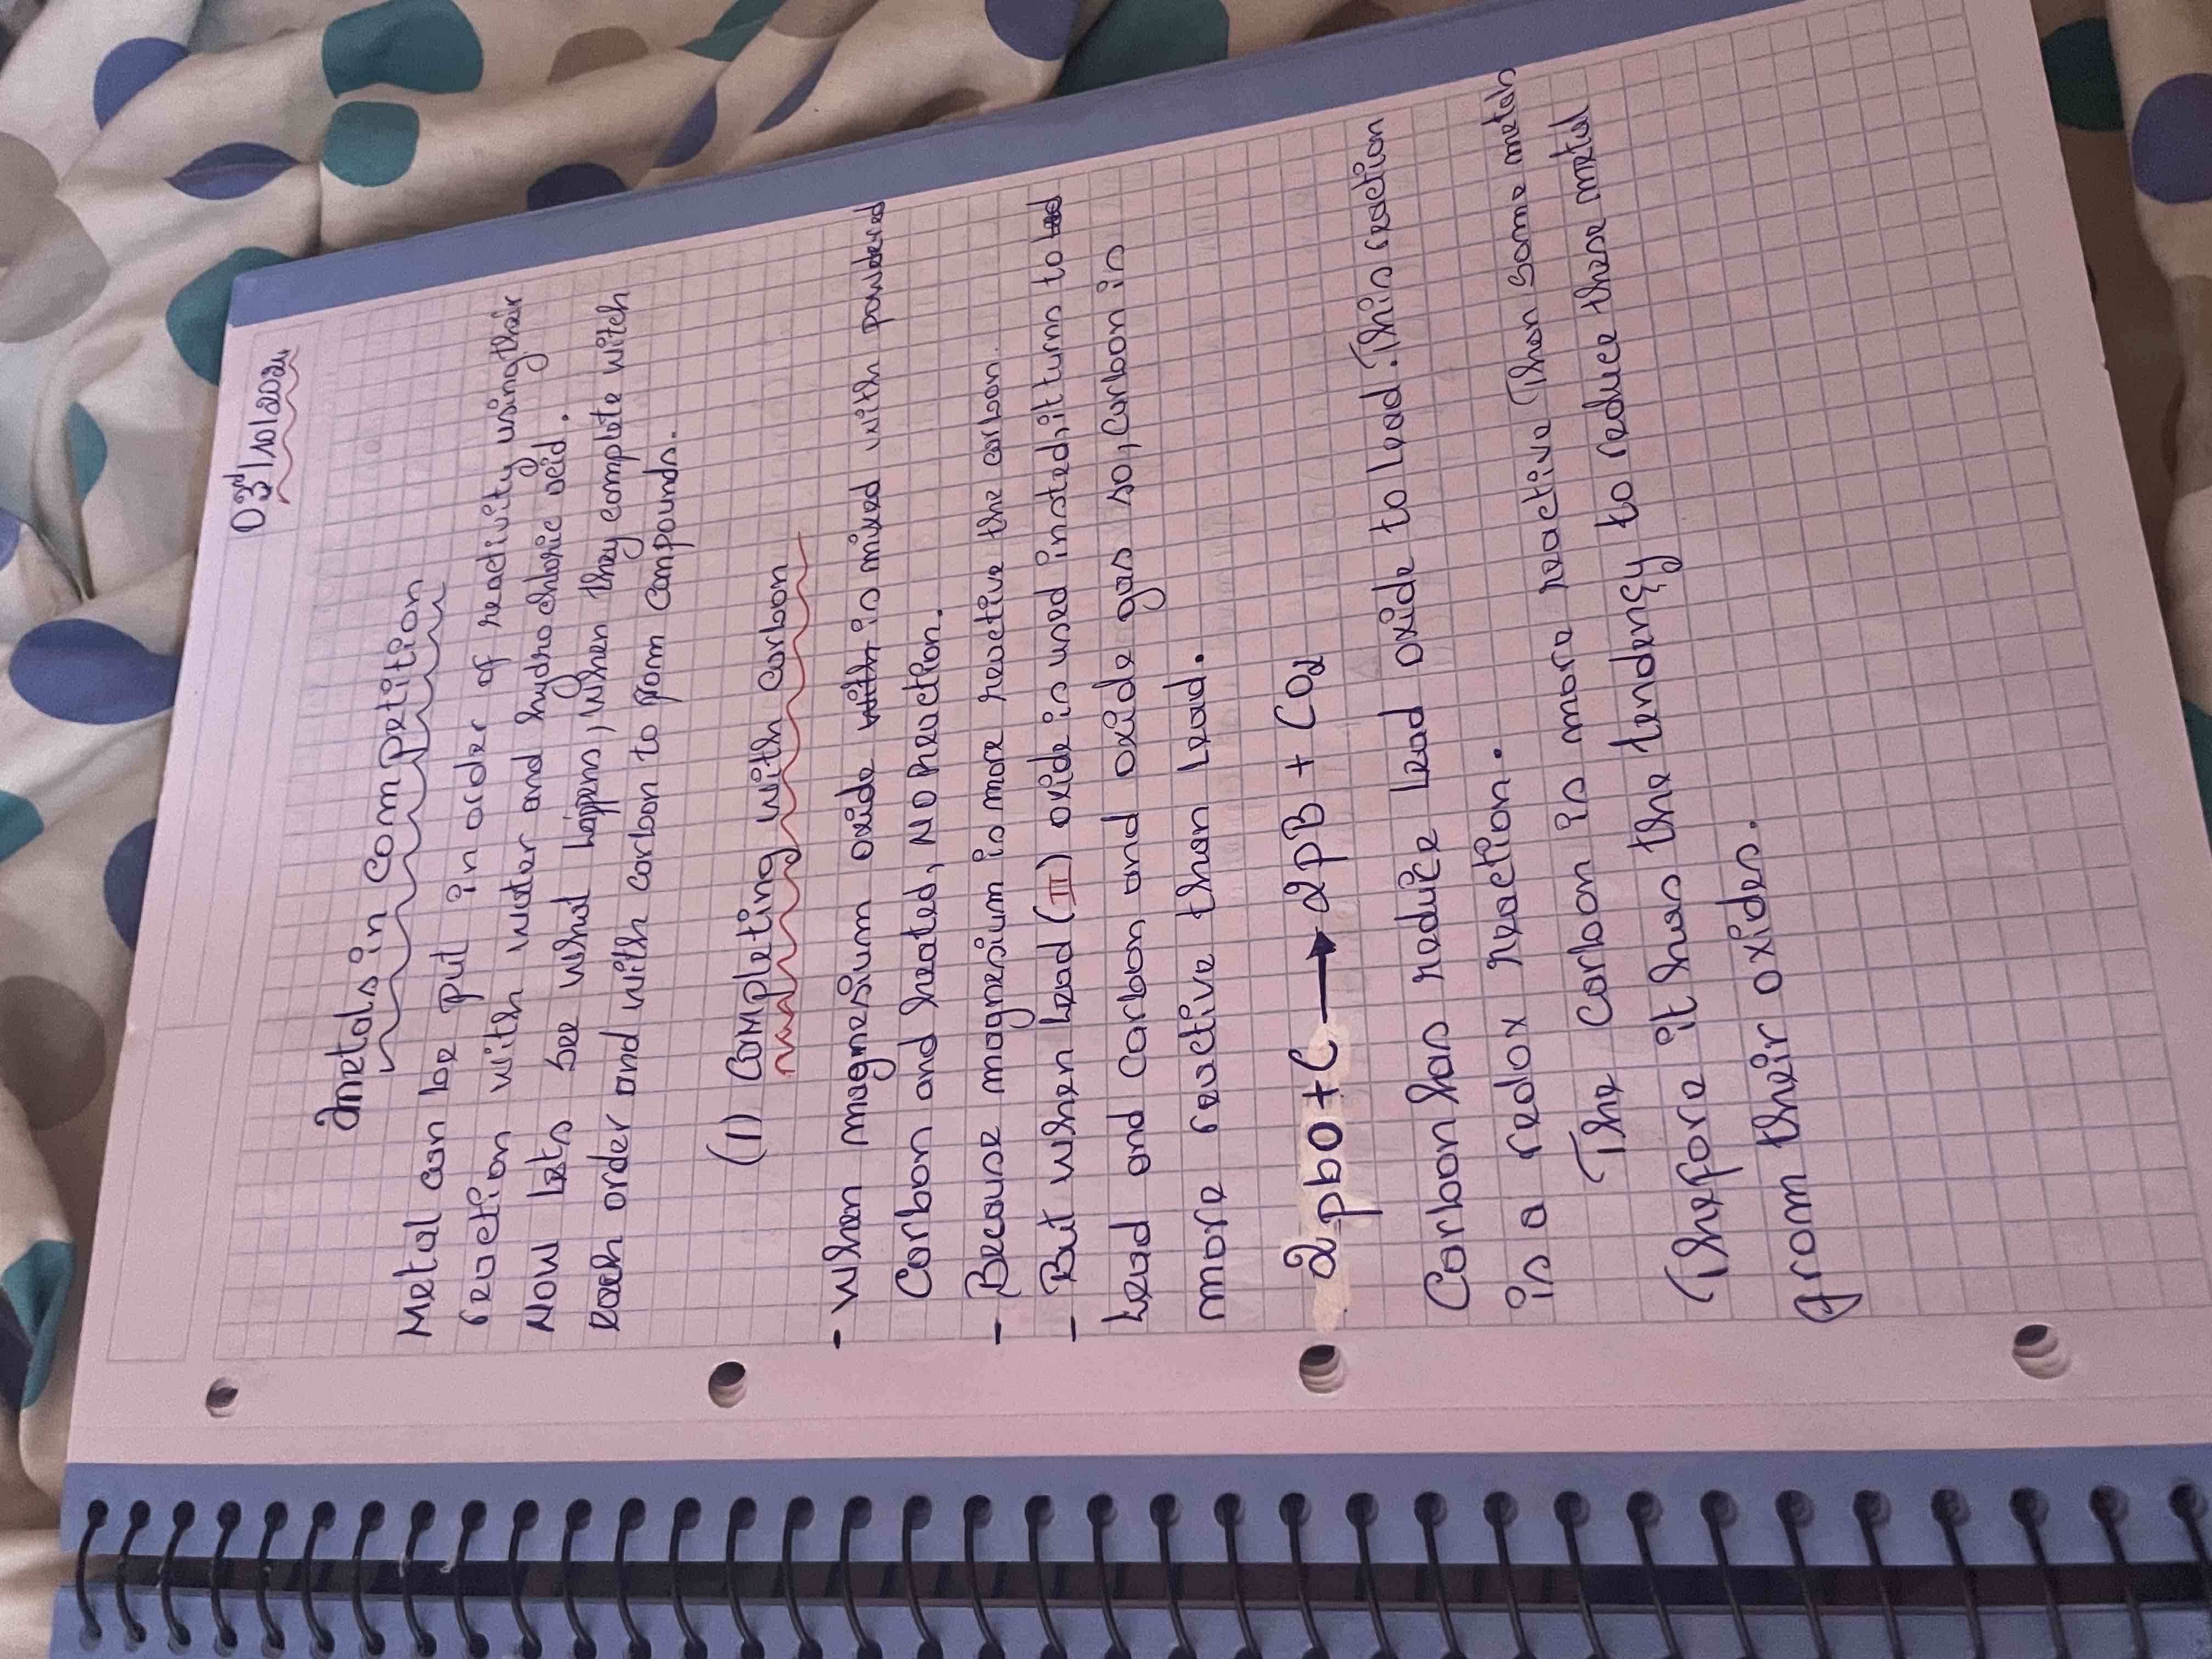 03rd/10/2024
Metals in competition
Metal can be put in order of reactivity using thair
reaction with water and hydrochloric acid.
Now Lets see what happens, when they complete witch
each order and with carbon to from compounds.
(1) completing with carbon
- When magnesium oxide with is mixed with powdered
Carbon and heated, No reaction.
- Because magnesium is more reactive the carbon.
- But when Lead (II) oxide is used insted, it turns to led
Lead and carbon and oxide gas so, Carbon is
more reactive than Lead.
2 pbO + C → 2pB + CO2
Carbon has reduce Lead oxide to Lead. This reaction
is a redox reaction.
The carbon is more reactive Then some metals
Thefore it has the tendency to reduce these metal
from their oxides.